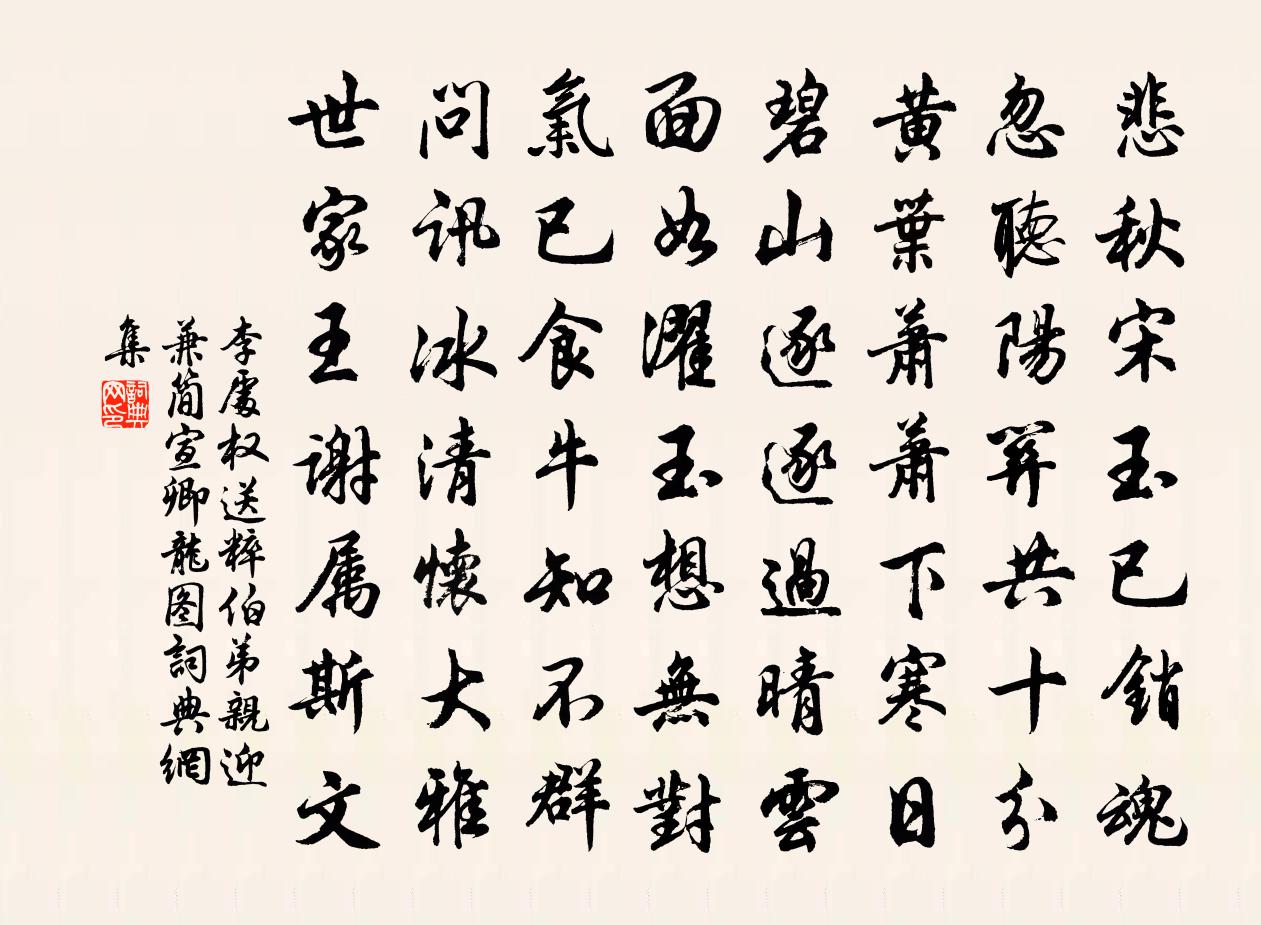 悲秋宋玉已銷魂
忽聽陽關共十分
黃葉蕭蕭下寒日
碧山逐逐過晴雲
面如濯玉想無對
氣已食牛知不群
問訊冰清懷大雅
世家王謝属斯文
李處权送粹伯弟親迎
兼简宣卿龍图詞典網
集
詞典網印